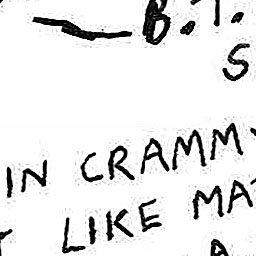 B.T.
S
IN CRAMM
LIKE MA
A